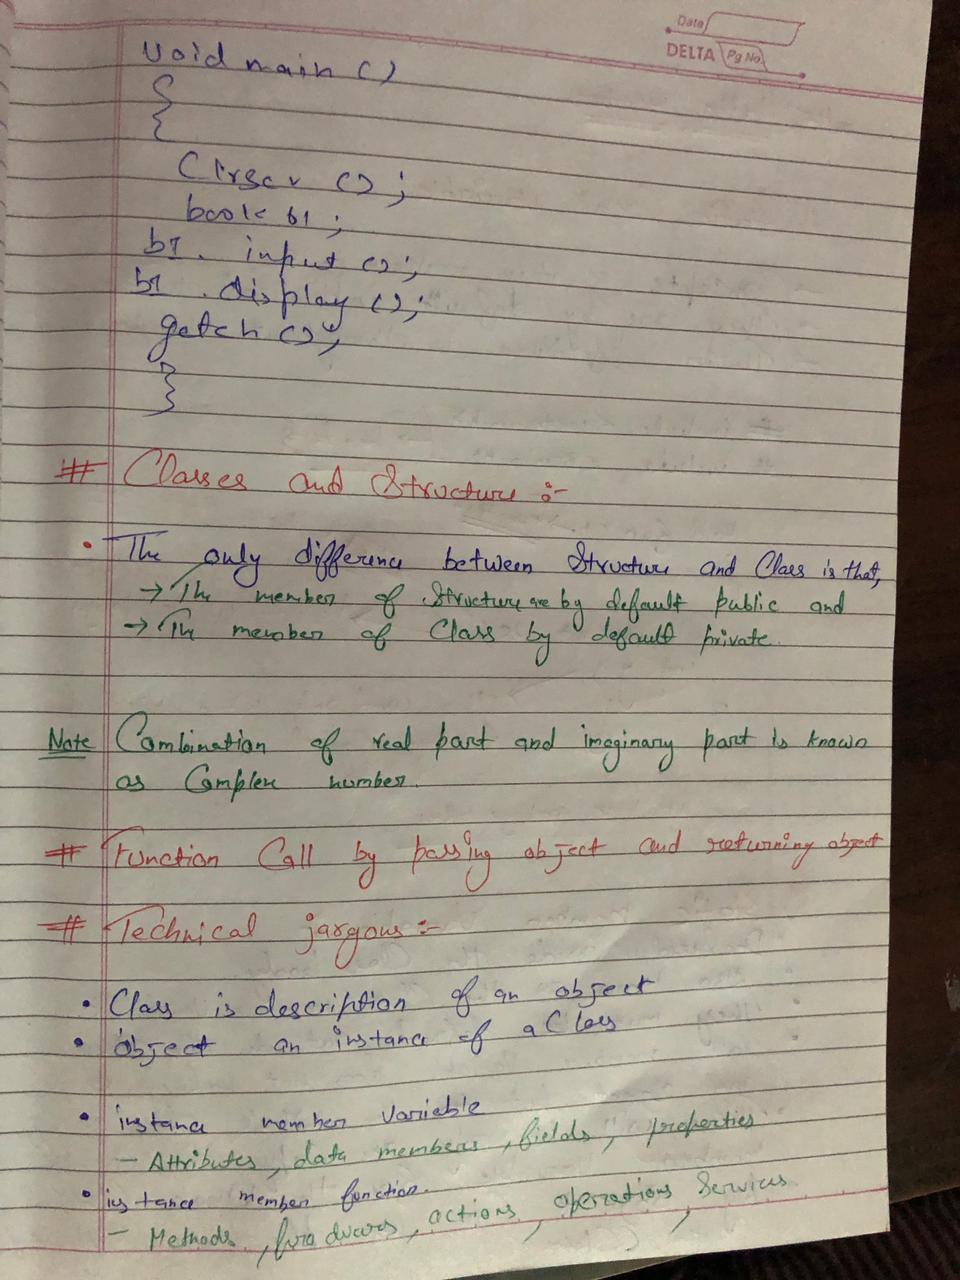 Date
DELTA Pg No.
void main ()
{
Clrscr ();
book b1;
b1. input ();
b1 .display ();
getch ();
}
# Classes and Structure :-
• The only difference between Structure and Class is that,
→ The member of Structure are by default public and
→ The member of Class by default private.
Note Combination of real part and imaginary part is known
as Complex number.
# Function Call by passing object and returning object
# Technical jargous :-
• Class is description of an object
• object an instance of a Class
• instance member variable
- Attributes, data members, fields, properties
• instance member function.
- Methods, actions, operations, Services